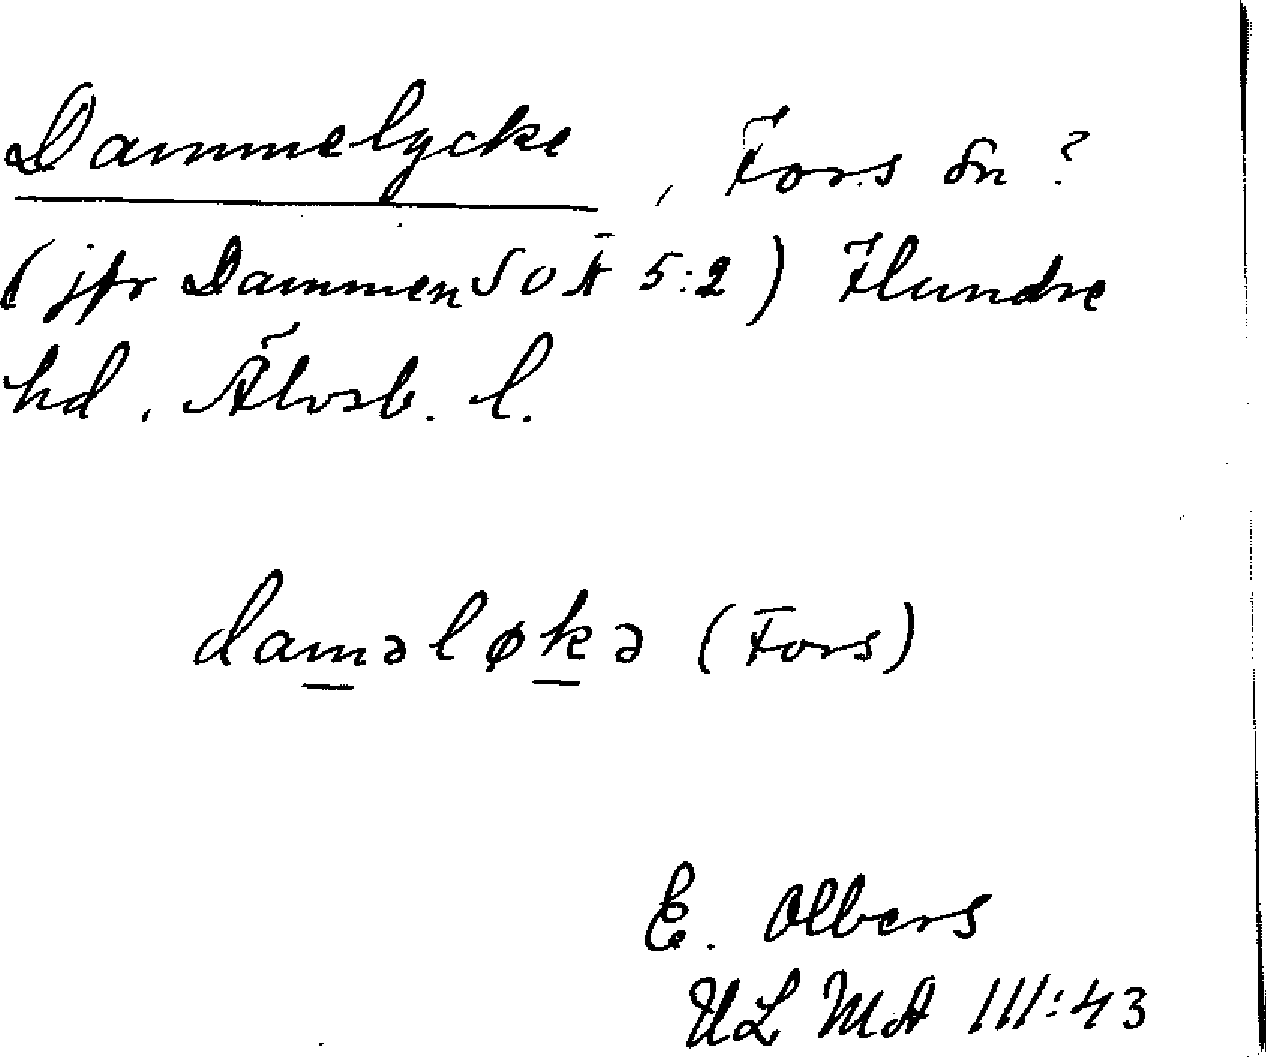 Dammelycke, Fors sn?
(jfr Dammen SOÄ 5:2) Flundre
hd. Älvsb. l.
daməløkə (Fors)
E. Olbers
ULMA 111:43